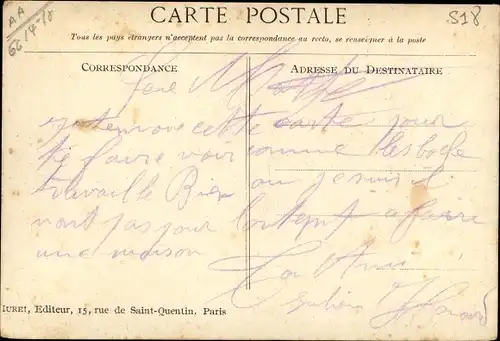 AA
62/4-10
S18
CARTE POSTALE
Tous les pays étrangers n'acceptent pas la correspondance au recto, se renseigner à la poste
CORRESPONDANCE
ADRESSE DU DESTINATAIRE
cette carte pour
te faire voir comme les boche
travaille Bien ou je suis il
vont pas pour lontent a faire
une maison
Ton Ami
Editeur, 15, rue de Saint-Quentin, Paris